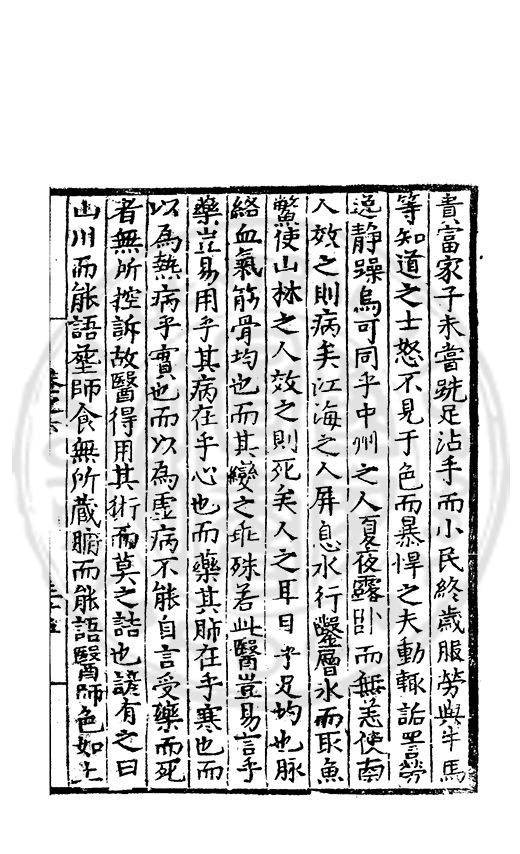 貴富家子未嘗跣足沾手而小民終歲服勞與牛馬
等知道之士怒不見于色而暴悍之夫動輒詬詈勞
逸靜躁烏可同乎中州之人夏夜露卧而無恙使南
人效之則病矣江海之人屏息水行鑿層冰而取魚
鱉使山林之人效之則死矣人之耳目手足均也脉
絡血氣筋骨均也而其變之乖殊若此醫豈易言乎
藥豈易用乎其病在乎心也而藥其肺在乎寒也而
以為熱病乎實也而以為虛病不能自言受藥而死
者無所控訴故醫得用其術而莫之詰也諺有之曰
山川而能語塟師食無所藏腑而能語醫師色如土